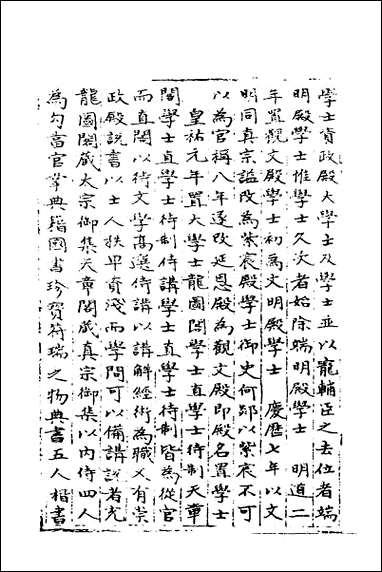 學士資政殿大學士及學士並以寵輔臣之去位者端
明殿學士惟學士久次者始除端明殿學士　明道二
年置觀文殿學士初為文明殿學士　慶曆七年以文
明同真宗謚改為紫宸殿學士御史何郯以紫宸不可
以為官稱八年遂改延恩殿為觀文殿即殿名置學士
皇祐元年置大學士龍圖閣學士直學士待制天章
閣學士直學士待制侍講學士直學士待制皆為從官
而直閣以待文學高選侍講以講解經術為職又有崇
政殿說書以士人秩卑資淺而學問可以備講說者充
龍圖閣藏太宗御集天章閣藏真宗御集以內侍四人
為勾當官掌典籍圖書珍寶符瑞之物典書五人楷書